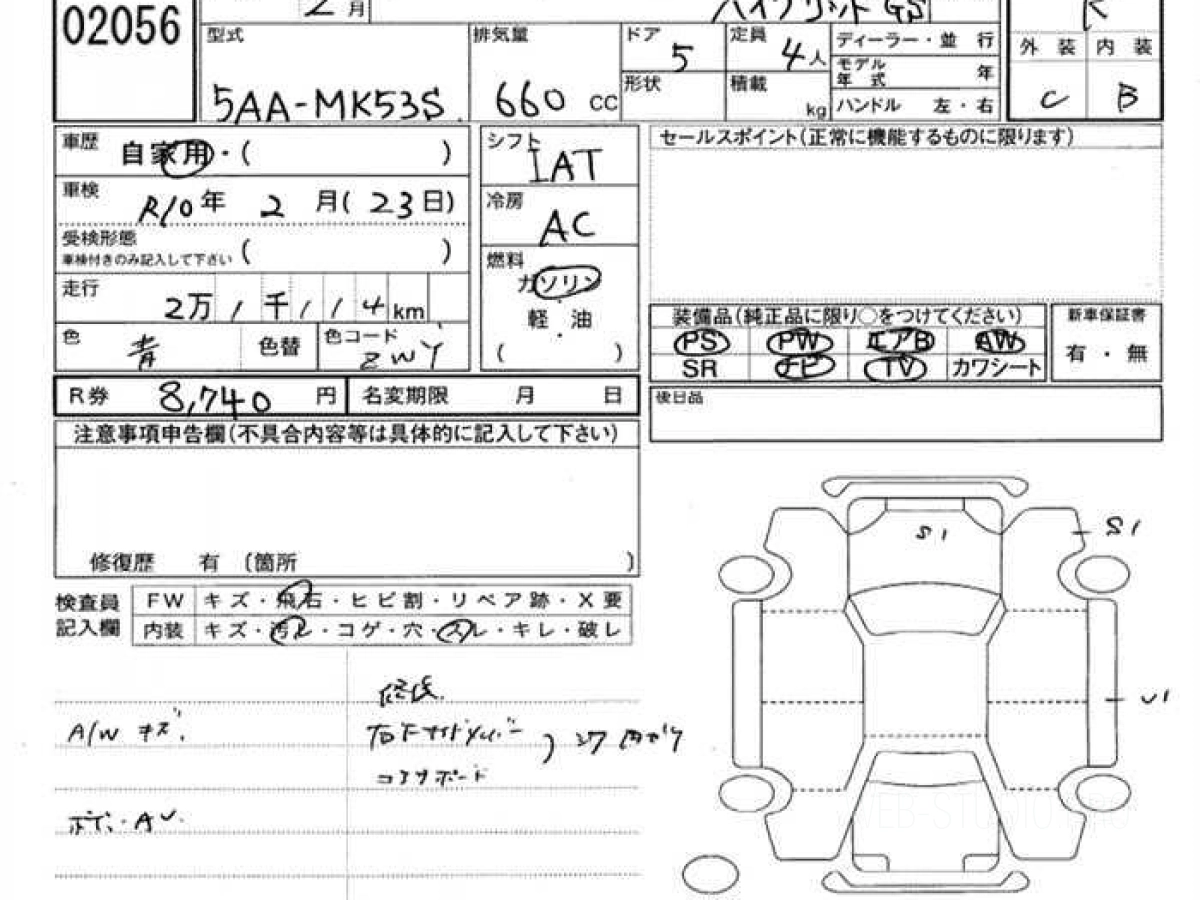 02056 2月 ハイブリット GS R
型式 5AA-MK53S 排気量 660 cc ドア 5 定員 4人 ディーラー・並行 外装 内装
形状 積載 kg モデル年式 年 C B
ハンドル 左・右
車歴 自家用・( ) シフト IAT セールスポイント(正常に機能するものに限ります)
車検 R10年 2月(23日) 冷房 AC
受検形態 ( )
車検付きのみ記入して下さい
燃料 ガソリン・軽・油 ( )
走行 2万1千114km
色 青 色替 色コード ZWY
装備品(純正品に限り○をつけてください) 新車保証書
PS PW エアB AW 有・無
SR ナビ TV カワシート
R券 8,740円 名変期限 月 日 後日品
注意事項申告欄(不具合内容等は具体的に記入して下さい)
修復歴 有 (箇所 )
検査員記入欄 FW キズ・飛石・ヒビ割・リペア跡・X要
内装 キズ・汚レ・コゲ・穴・スレ・キレ・破レ
S1 S1
U1
修復
A/W キズ 右下サイドメンバー
コアサポート